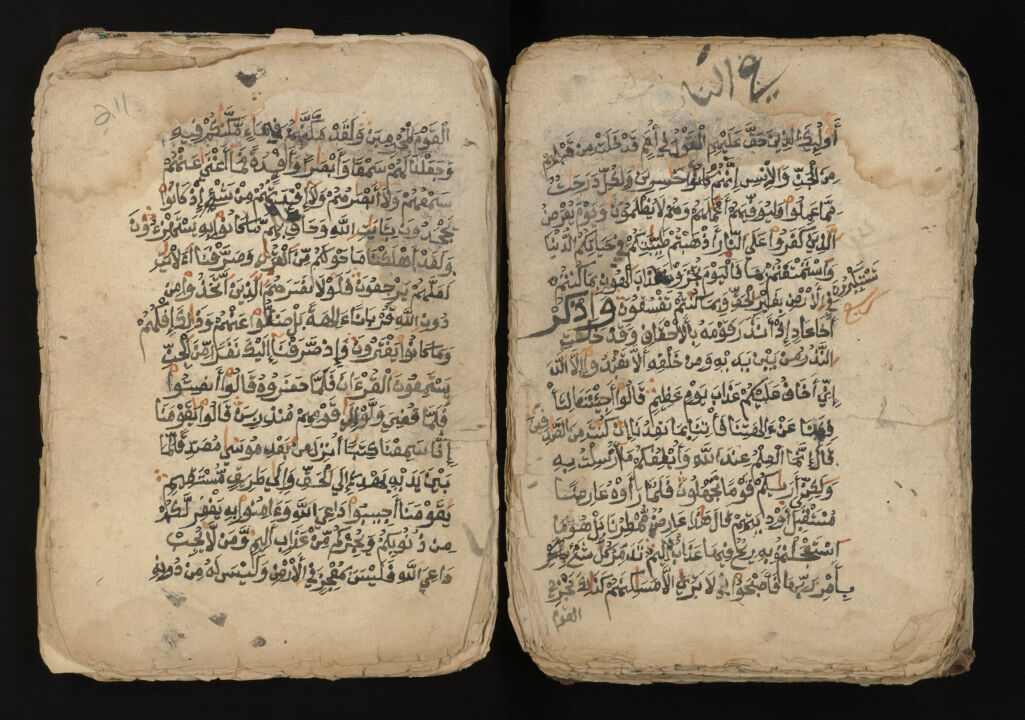 أولئك الذين حق عليهم القول في أمم قد خلت من قبلهم
من الجن والإنس إنهم كانوا خسرين ولكل درجت
مما عملوا وليوفيهم أعملهم وهم لا يظلمون ويوم يعرض
الذين كفروا على النار أذهبتم طيبتكم في حياتكم الدنيا
واستمتعتم بها فاليوم تجزون عذاب الهون بما كنتم
تستكبرون
في الأرض بغير الحق وبما كنتم تفسقون واذكر
أخا عاد إذ أنذر قومه بالأحقاف وقد خلت
النذر من بين يديه ومن خلفه ألا تعبدوا إلا الله
إني أخاف عليكم عذاب يوم عظيم قالوا أجئتنا لتأ
فكنا عن ءالهتنا فأتنا بما تعدنا إن كنت من الصدقين
قال إنما العلم عند الله وأبلغكم ما أرسلت به
ولكني أريكم قوما تجهلون فلما رأوه عارضا
مستقبل أوديتهم قالوا هذا عارض ممطرنا بل هو ما
استعجلتم به ريح فيها عذاب أليم تدمر كل شيء
بأمر ربها فأصبحوا لا ترى إلا مسكنهم كذلك نجزي
القوم
القوم المجرمين ولقد مكنهم فيما إن مكنكم فيه
وجعلنا لهم سمعا وأبصرا وأفـدة فما أغنى عنهم
سمعهم ولا أبصرهم ولا أفـدتهم من شيء إذ كانوا
يجحدون بـايت الله وحاق بهم ما كانوا به يستهزءون
ولقد أهلكنا ما حولكم من القرى وصرفنا الأيت
لعلهم يرجعون فلولا نصرهم الذين اتخذوا من
دون الله قربانا ءالهة بل ضلوا عنهم وذلك إفكهم
وما كانوا يفترون وإذ صرفنا إليك نفرا من الجن
يستمعون القرءان فلما حضروه قالوا أنصتوا
فلما قضي ولوا إلى قومهم منذرين قالوا يقومنا
إنا سمعنا كتبا أنزل من بعد موسى مصدقا لما
بين يديه يهدي إلى الحق وإلى طريق مستقيم
يقومنا أجيبوا داعي الله وءامنوا به يغفر لكم
من ذنوبكم ويجركم من عذاب أليم ومن لا يجب
داعي الله فليس بمعجز في الأرض وليس له من دونه